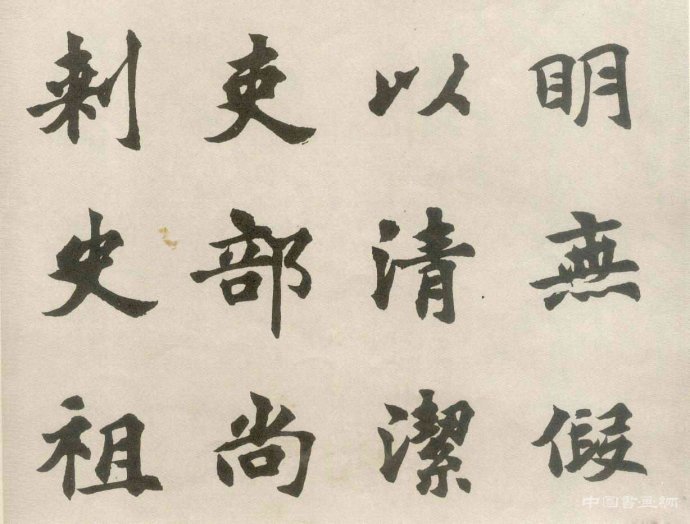 明無假
以清潔
吏部尚
刺史祖
中国書画網